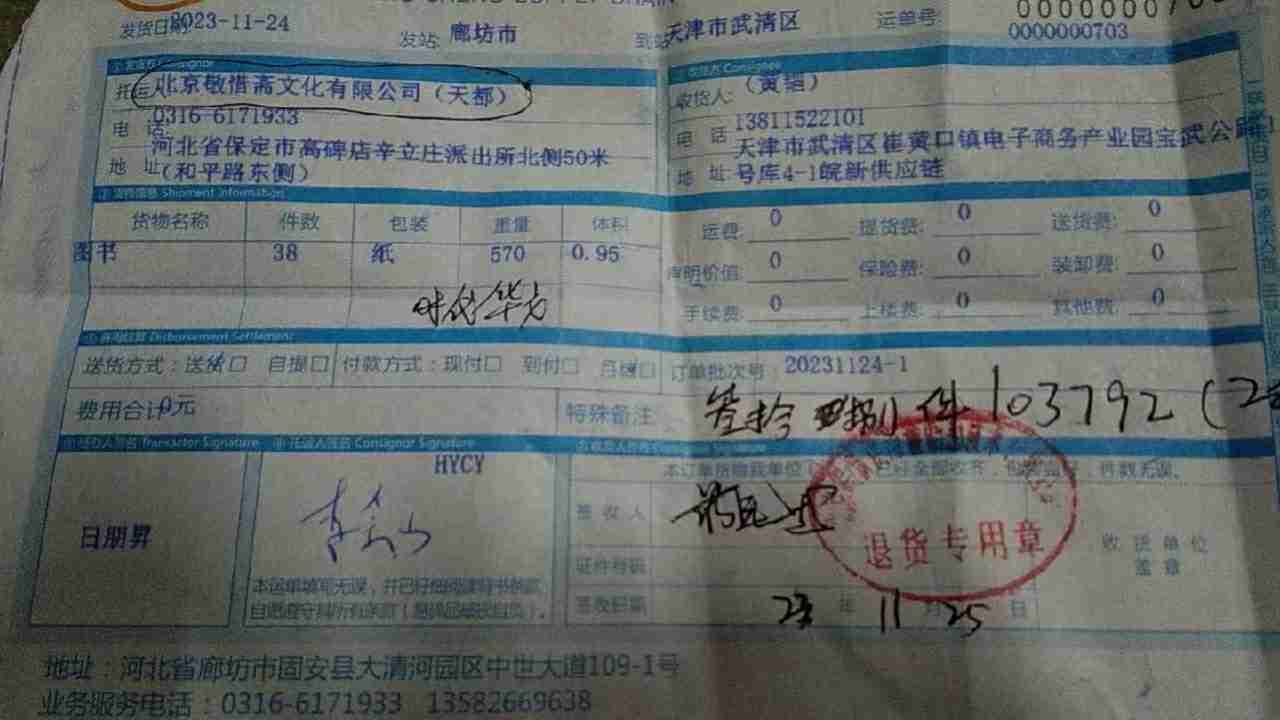 发货日期 2023-11-24 发站: 廊坊市 到站 天津市武清区 运单号:
0000000703
Consignor Consignee
托运人 北京敬惜斋文化有限公司(天都) 收货人: (黄铠)
电 话: 0316-6171933 电 话 13811522101
地 址 河北省保定市高碑店辛立庄派出所北侧50米 地 址 天津市武清区崔黄口镇电子商务产业园宝武公路
(和平路东侧) 号库4-1皖新供应链
货物信息 Shipment Information
货物名称 件数 包装 重量 体积 运费: 0 提货费: 0 送货费: 0
图书 38 纸 570 0.95 声明价值: 0 保险费: 0 装卸费: 0
时代华方 手续费: 0 上楼费: 0 其他费: 0
Disbursement Settlement
送货方式:送货□ 自提□ 付款方式:现付□ 到付□ 月结□ 订单批次号 20231124-1
费用合计0元 特殊备注 叁拾 捌 件 103792
经办人签名 Transactor Signature 托运人签名 Consignor Signature
HYCY
日朋昇
签收人
退货专用章
收货单位
盖章
证件号码
本运单填写无误,并已仔细阅读背书条款
自愿遵守其所有条款
签收日期 23 年 11 月 25 日
地址:河北省廊坊市固安县大清河园区中世大道109-1号
业务服务电话:0316-6171933 13582669638